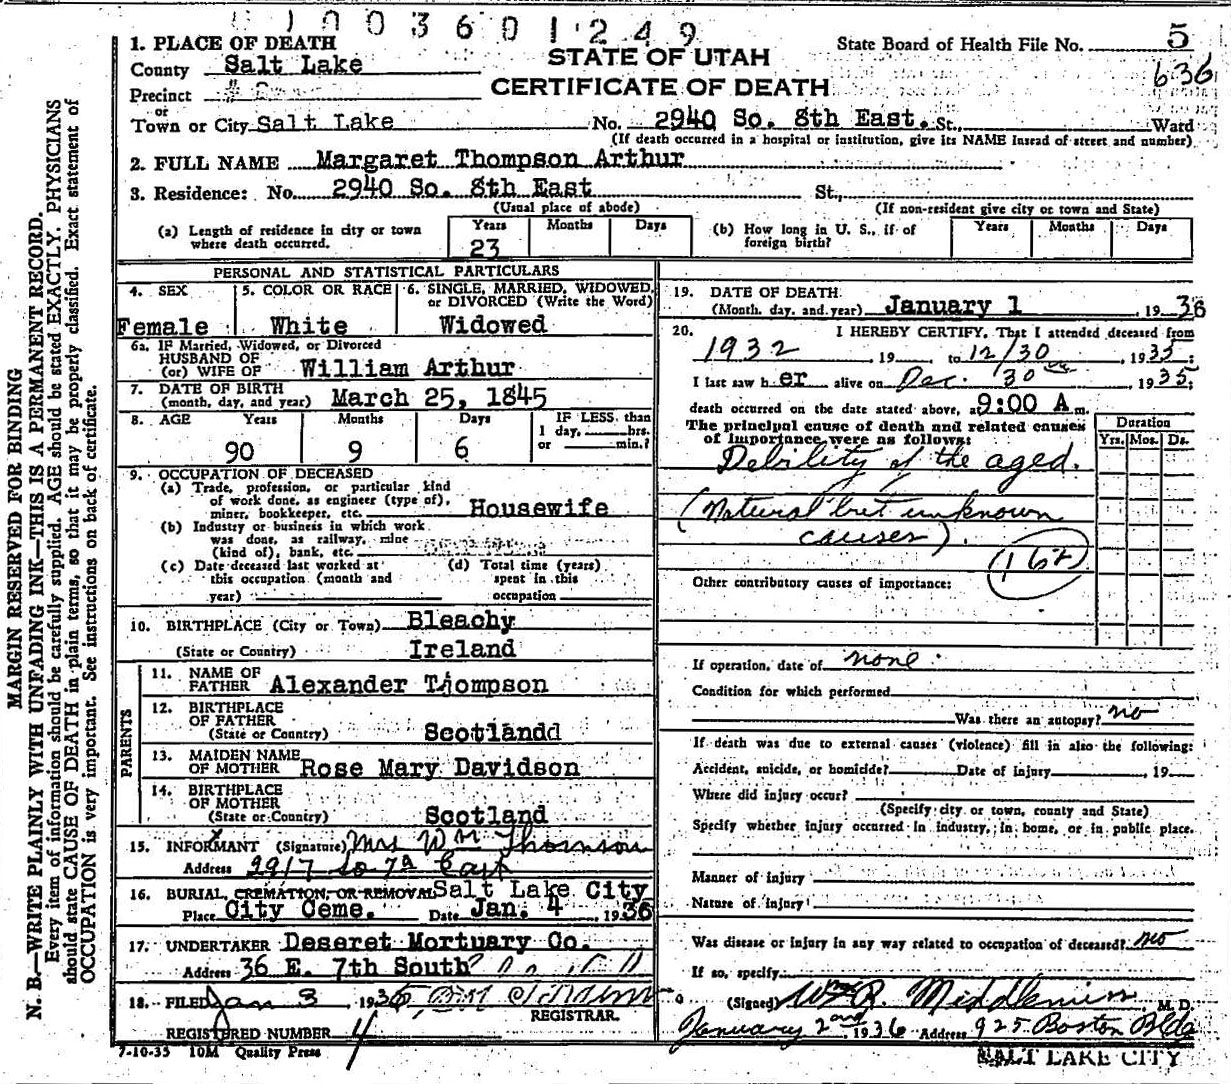 1003601249
1. PLACE OF DEATH
County Salt Lake
Precinct
or
Town or City Salt Lake
STATE OF UTAH
CERTIFICATE OF DEATH
State Board of Health File No. 5
636
No. 2940 So. 8th East. St., Ward
(If death occurred in a hospital or institution, give its NAME Insead of street and number)
2. FULL NAME Margaret Thompson Arthur
3. Residence: No. 2940 So. 8th East St.,
(Usual place of abode) (If non-resident give city or town and State)
(a) Length of residence in city or town where death occurred. Years 23 Months Days
(b) How long in U. S., if of foreign birth? Years Months Days
PERSONAL AND STATISTICAL PARTICULARS
4. SEX 5. COLOR OR RACE 6. SINGLE, MARRIED, WIDOWED,
or DIVORCED (Write the Word)
Female White Widowed
6a. IF Married, Widowed, or Divorced
HUSBAND OF
(or) WIFE OF William Arthur
7. DATE OF BIRTH
(month, day, and year) March 25, 1845
8. AGE Years Months Days IF LESS than
1 day, hrs.
or min.?
90 9 6
9. OCCUPATION OF DECEASED
(a) Trade, profession, or particular kind
of work done, as engineer (type of),
miner, bookkeeper, etc. Housewife
(b) Industry or business in which work
was done, as railway, mine
(kind of), bank, etc.
(c) Date deceased last worked at
this occupation (month and
year)
(d) Total time (years)
spent in this
occupation
10. BIRTHPLACE (City or Town) Bleachy
(State or Country) Ireland
PARENTS
11. NAME OF
FATHER Alexander Thompson
12. BIRTHPLACE
OF FATHER
(State or Country) Scotlandd
13. MAIDEN NAME
OF MOTHER Rose Mary Davidson
14. BIRTHPLACE
OF MOTHER
(State or Country) Scotland
15. INFORMANT (Signature) Mrs Wm Thomson
Address 2917 So 7th East
16. BURIAL, CREMATION, OR REMOVAL Salt Lake City
Place City Ceme. Date Jan. 4, 1936
17. UNDERTAKER Deseret Mortuary Co.
Address 36 E. 7th South
18. FILED Jan 3, 1936
REGISTRAR.
REGISTERED NUMBER 4
7-10-35 10M Quality Press
19. DATE OF DEATH
(Month, day, and year) January 1, 1936
20. I HEREBY CERTIFY, That I attended deceased from
1932, 19 to 12/30, 1935;
I last saw her alive on Dec. 30th, 1935;
death occurred on the date stated above, at 9:00 A m.
The principal cause of death and related causes
of importance were as follows:
Duration
Yrs. Mos. Ds.
Debility of the aged.
(Natural but unknown
causes).
162
Other contributory causes of importance:
If operation, date of none.
Condition for which performed
Was there an autopsy? no
If death was due to external causes (violence) fill in also the following:
Accident, suicide, or homicide? Date of injury, 19
Where did injury occur?
(Specify city or town, county and State)
Specify whether injury occurred in industry, in home, or in public place.
Manner of injury
Nature of injury
Was disease or injury in any way related to occupation of deceased? no
If so, specify
(Signed) Wm R. Middlemiss M. D.
January 2nd, 1936 Address 925 Boston Bldg
SALT LAKE CITY
MARGIN RESERVED FOR BINDING
N. B.—WRITE PLAINLY WITH UNFADING INK—THIS IS A PERMANENT RECORD.
Every item of information should be carefully supplied. AGE should be stated EXACTLY. PHYSICIANS
should state CAUSE OF DEATH in plain terms, so that it may be properly classified. Exact statement of
OCCUPATION is very important. See instructions on back of certificate.